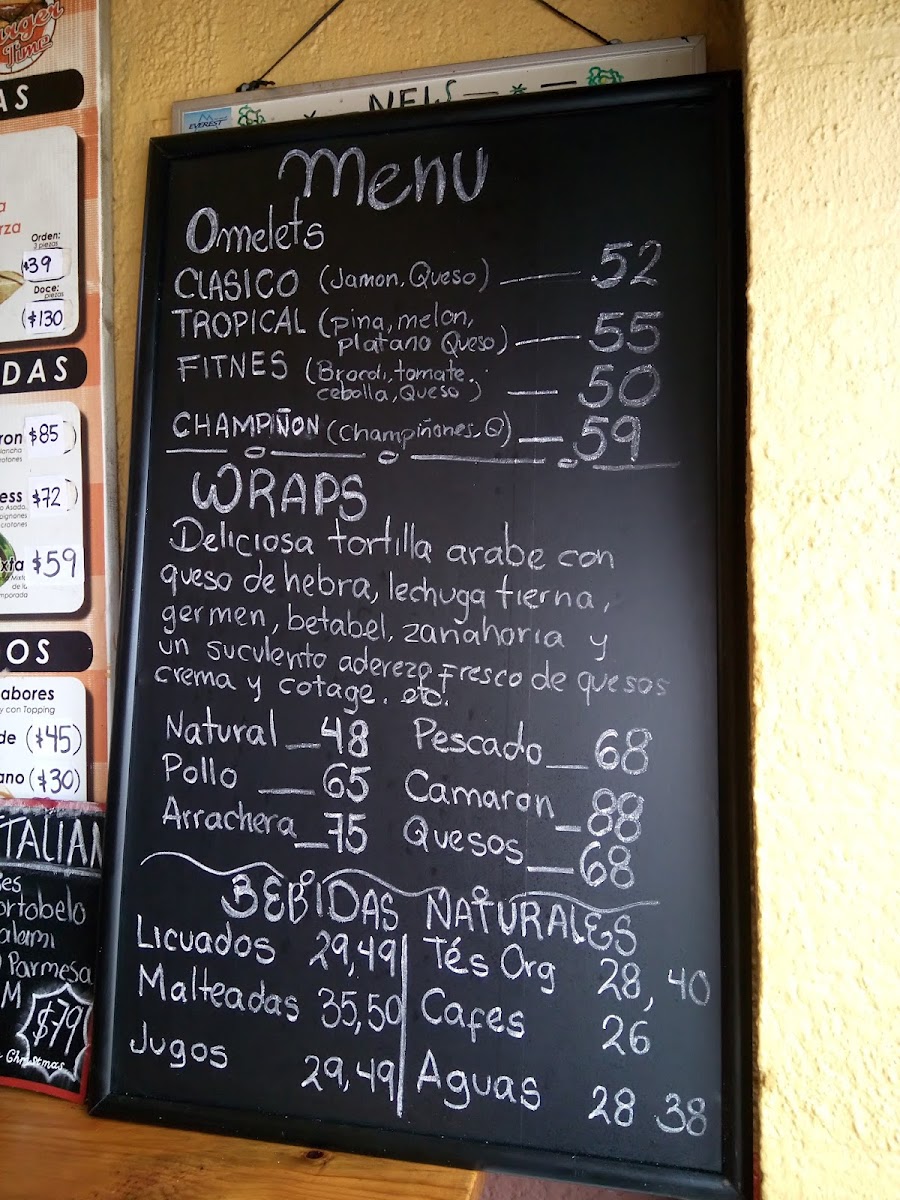 urger
Time
AS
Orden:
3 piezas
$39
Doce:
piezas
($130
DAS
$85
$72
$59
OS
abores
y con Topping
($45)
($30)
ITALIAN
ortobelo
alami
Parmesa
M
$79
Christmas
EVEREST
Menu
Omelets
CLASICO (Jamon, Queso) 52
TROPICAL (pina, melon,
platano Queso) 55
FITNES (Brocoli, tomate,
cebolla, Queso) 50
CHAMPIÑON (Champiñones, Q) 59
WRAPS
Deliciosa tortilla arabe con
queso de hebra, lechuga tierna,
germen, betabel, zanahoria y
un suculento aderezo fresco de quesos
crema y cotage. etc!
Natural 48 Pescado 68
Pollo 65 Camaron 88
Arrachera 75 Quesos 68
BEBIDAS NATURALES
Licuados 29,49 Tés Org 28, 40
Malteadas 35,50 Cafes 26
Jugos 29,49 Aguas 28 38